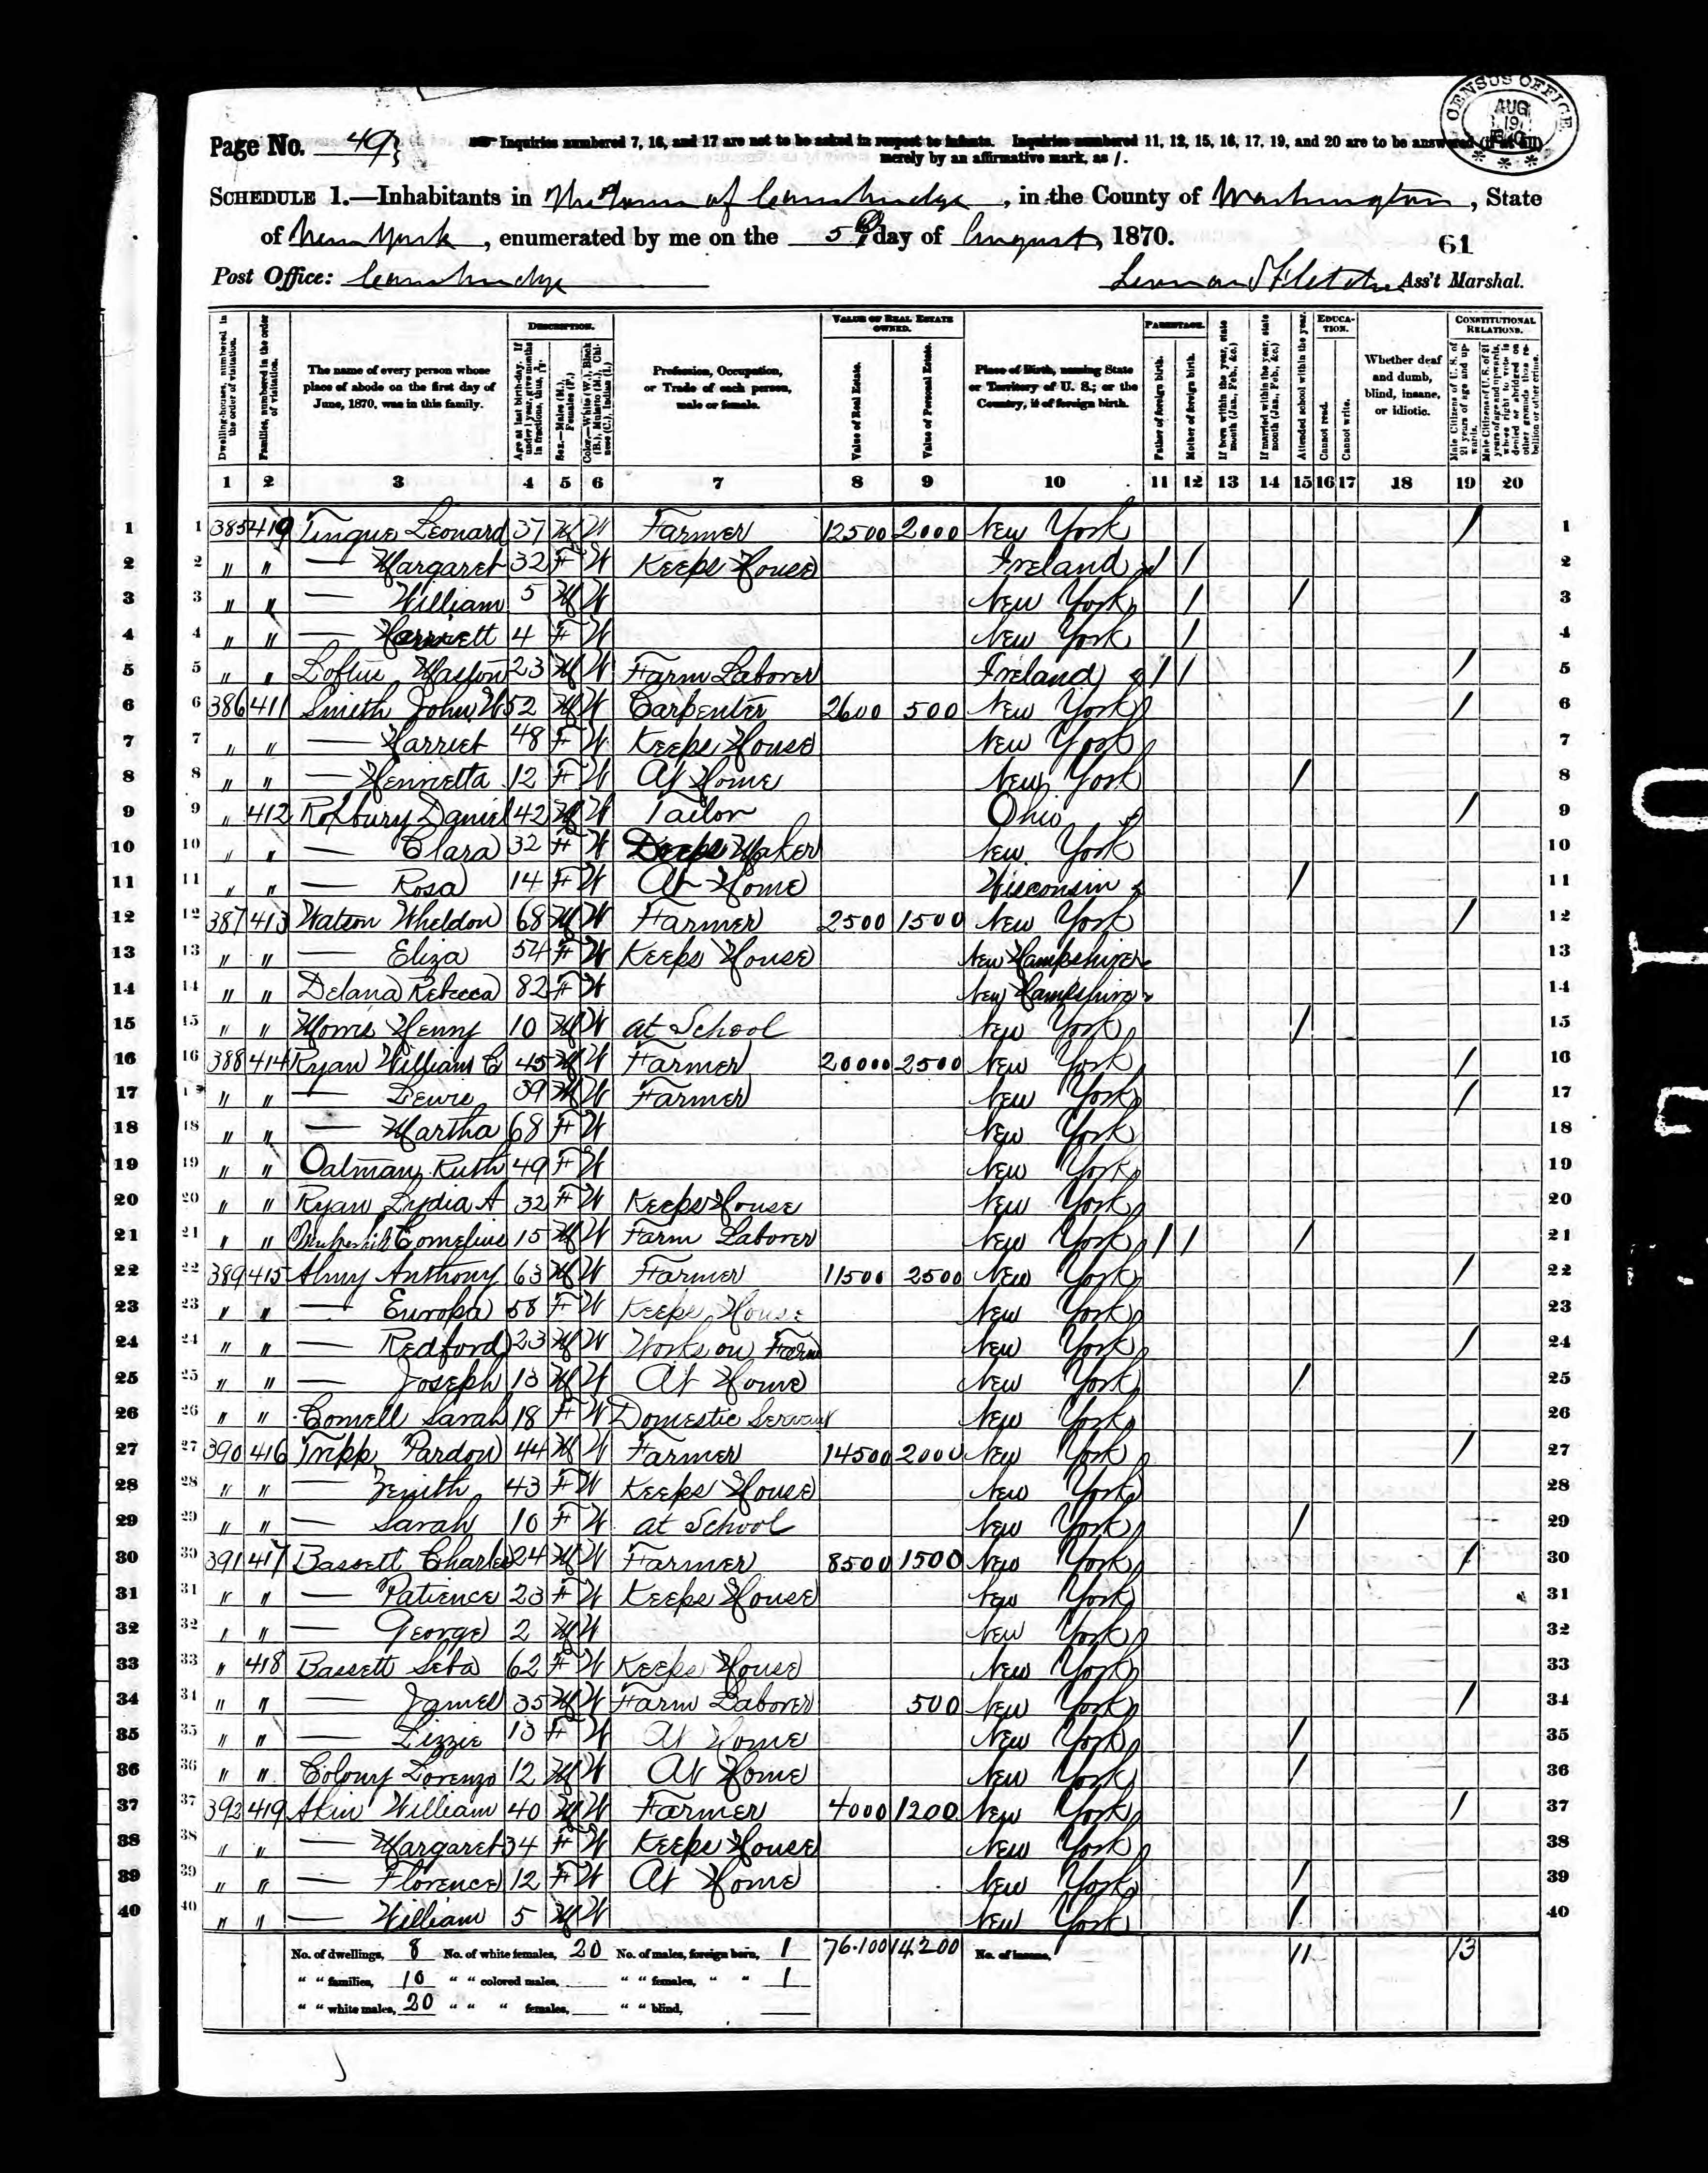 CENSUS OFFICE AUG 19
Page No. 49
Inquiries numbered 7, 16, and 17 are not to be asked in respect to infants. Inquiries numbered 11, 12, 15, 16, 17, 19, and 20 are to be answered (if at all)
merely by an affirmative mark, as /.
SCHEDULE 1.—Inhabitants in The Town of Cambridge, in the County of Washington, State
of New York, enumerated by me on the 5th day of August, 1870.
61
Post Office: Cambridge Fletcher Ass't Marshal.
Dwelling-houses, numbered in the order of visitation.
Families, numbered in the order of visitation.
The name of every person whose place of abode on the first day of June, 1870, was in this family.
DESCRIPTION.
Age at last birth-day. If under 1 year, give months in fractions, thus,
Sex.—Males (M.), Females (F.)
Color.—White (W.), Black (B.), Mulatto (M.), Chinese (C.), Indian (I.)
Profession, Occupation, or Trade of each person, male or female.
VALUE OF REAL ESTATE OWNED.
Value of Real Estate.
Value of Personal Estate.
Place of Birth, naming State or Territory of U. S.; or the Country, if of foreign birth.
PARENTAGE.
Father of foreign birth.
Mother of foreign birth.
If born within the year, state month (Jan., Feb., &c.)
If married within the year, state month (Jan., Feb., &c.)
Attended school within the year.
EDUCATION.
Cannot read.
Cannot write.
Whether deaf and dumb, blind, insane, or idiotic.
CONSTITUTIONAL RELATIONS.
Male Citizens of U. S. of 21 years of age and upwards.
Male Citizens of U. S. of 21 years of age and upwards, whose right to vote is denied or abridged on other grounds than rebellion or other crime.
1 2 3 4 5 6 7 8 9 10 11 12 13 14 15 16 17 18 19 20
1 1 385 419 Tingue Leonard 37 M W Farmer 12500 2000 New York / 1
2 2 " " — Margaret 32 F W Keeps House Ireland / / 2
3 3 " " — William 5 M W New York / / 3
4 4 " " — Harriett 4 F W New York / 4
5 5 " " Loftus 23 M W Farm Laborer Ireland / / / 5
6 6 386 411 Smith John W 52 M W Carpenter 2600 500 New York / 6
7 7 " " — Harriet 48 F W Keeps House New York 7
8 8 " " — Henrietta 12 F W At Home New York / 8
9 9 " 412 Roxbury Daniel 42 M W Tailor Ohio / 9
10 10 " " — Clara 32 F W Maker New York 10
11 11 " " — Rosa 14 F W At Home Wisconsin / 11
12 12 387 413 Watson Wheldon 68 M W Farmer 2500 1500 New York / 12
13 13 " " — Eliza 54 F W Keeps House New Hampshire 13
14 14 " " Delana Rebecca 82 F W New Hampshire 14
15 15 " " Morris Henry 10 M W at School New York / 15
16 16 388 414 Ryan William C 45 M W Farmer 20000 2500 New York / 16
17 17 " " — Lewis 39 M W Farmer New York / 17
18 18 " " — Martha 68 F W New York 18
19 19 " " Oatman Ruth 49 F W New York 19
20 20 " " Ryan Lydia A 32 F W Keeps House New York 20
21 21 " " Cornelius 15 M W Farm Laborer New York / / / 21
22 22 389 415 Almy Anthony 63 M W Farmer 11500 2500 New York / 22
23 23 " " — Europa 58 F W Keeps House New York 23
24 24 " " — Redford 23 M W Works on Farm New York / 24
25 25 " " — Joseph 13 M W At Home New York / 25
26 26 " " Cornell Sarah 18 F W Domestic Servant New York 26
27 27 390 416 Tripp Pardon 44 M W Farmer 14500 2000 New York / 27
28 28 " " — Zenith 43 F W Keeps House New York 28
29 29 " " — Sarah 10 F W at School New York / 29
30 30 391 417 Bassett Charles 24 M W Farmer 8500 1500 New York / 30
31 31 " " — Patience 23 F W Keeps House New York 31
32 32 " " — George 2 M W New York 32
33 33 " 418 Bassett Seba 62 F W Keeps House New York 33
34 34 " " — James 35 M W Farm Laborer 500 New York / 34
35 35 " " — Lizzie 13 F W At Home New York / 35
36 36 " " Colony Lorenzo 12 M W At Home New York / 36
37 37 392 419 Akin William 40 M W Farmer 4000 1200 New York / 37
38 38 " " — Margaret 34 F W Keeps House New York 38
39 39 " " — Florence 12 F W At Home New York / 39
40 40 " " — William 5 M W New York / 40
No. of dwellings, 8 No. of white females, 20 No. of males, foreign born, 1 76.100 14200 No. of insane, 11 13
" " families, 10 " " colored males, " " females, " " 1
" " white males, 20 " " " females, " " blind,